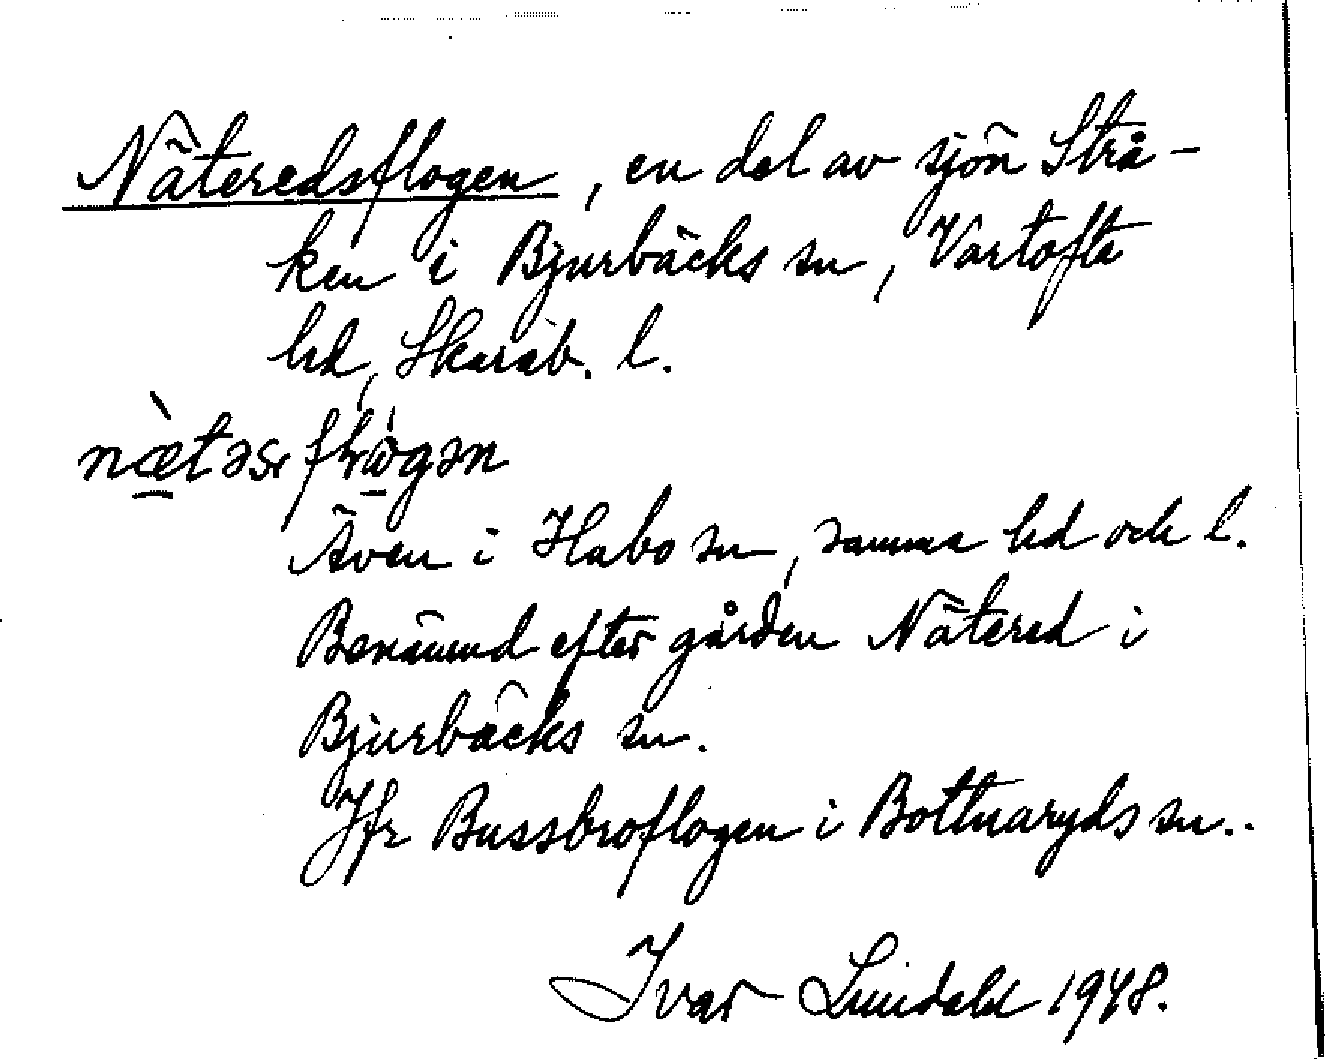 Näteredsflogen, en del av sjön Strå-
ken i Bjurbäcks sn, Vartofta
hd, Skarab. l.
Även i Habo sn, samma hd och l.
Benämnd efter gården Nätered i
Bjurbäcks sn.
Jfr Bussbroflogen i Bottnaryds sn..
Ivar Lundahl 1948.